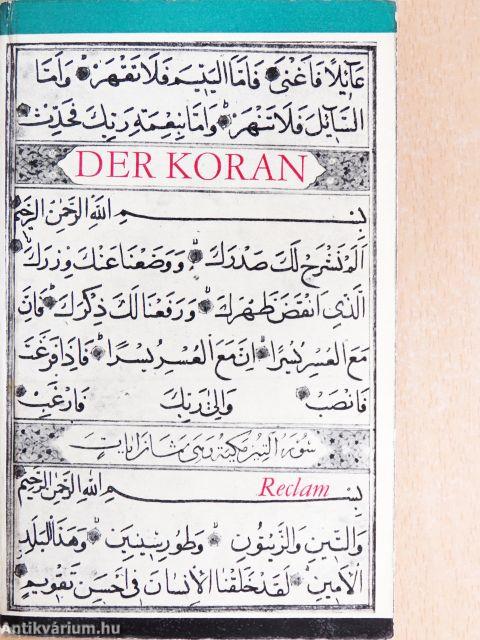 عَآئِلًا فَاَغْنٰى فَاَمَّا الْيَتِيمَ فَلَا تَقْهَرْ وَاَمَّا
السَّآئِلَ فَلَا تَنْهَرْ وَاَمَّا بِنِعْمَةِ رَبِّكَ فَحَدِّثْ
DER KORAN
بِسْمِ اللهِ الرَّحْمٰنِ الرَّحِيمِ
اَلَمْ نَشْرَحْ لَكَ صَدْرَكَ وَوَضَعْنَا عَنْكَ وِزْرَكَ
الَّذِي اَنْقَضَ ظَهْرَكَ وَرَفَعْنَا لَكَ ذِكْرَكَ فَاِنَّ
مَعَ الْعُسْرِ يُسْرًا اِنَّ مَعَ الْعُسْرِ يُسْرًا فَاِذَا فَرَغْتَ
فَانْصَبْ وَاِلٰى رَبِّكَ فَارْغَبْ
سورة التين مكية وهي ثمان ايات
بِسْمِ اللهِ الرَّحْمٰنِ الرَّحِيمِ
Reclam
وَالتِّينِ وَالزَّيْتُونِ وَطُورِ سِينِينَ وَهٰذَا الْبَلَدِ
الْاَمِينِ لَقَدْ خَلَقْنَا الْاِنْسَانَ فِي اَحْسَنِ تَقْوِيمٍ
Antikvárium.hu